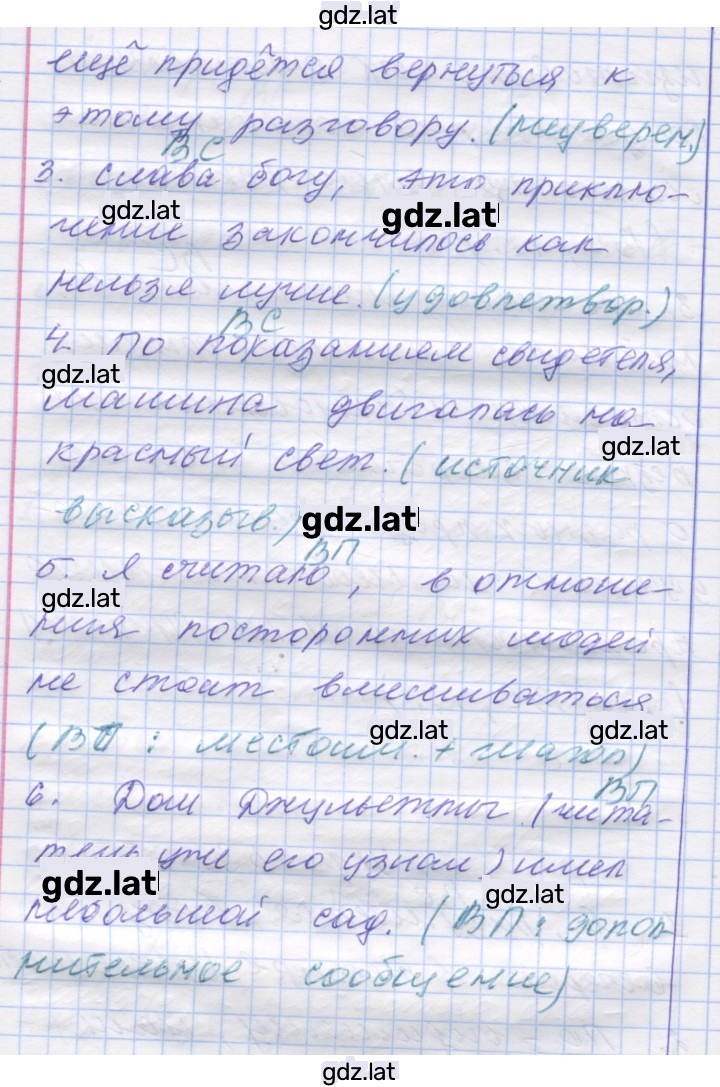 gdz.lat
ещё придётся вернуться к
этому разговору. (неуверен.)
ВС
3. Слава богу, это приклю-
gdz.lat gdz.lat
чение закончилось как
нельзя лучше. (удовлетвор.)
ВС
4. По показаниям свидетеля,
gdz.lat
машина двигалась на
gdz.lat
красный свет. (источник
высказыв.) gdz.lat
ВП
5. Я считаю, в отноше-
gdz.lat
ния посторонних людей
не стоит вмешиваться
gdz.lat gdz.lat
(ВП: местоим. + глагол)
ВП
6. Дом Джульетты (чита-
тель уже его узнал) имел
gdz.lat gdz.lat
небольшой сад. (ВП: допол-
нительное сообщение)
gdz.lat